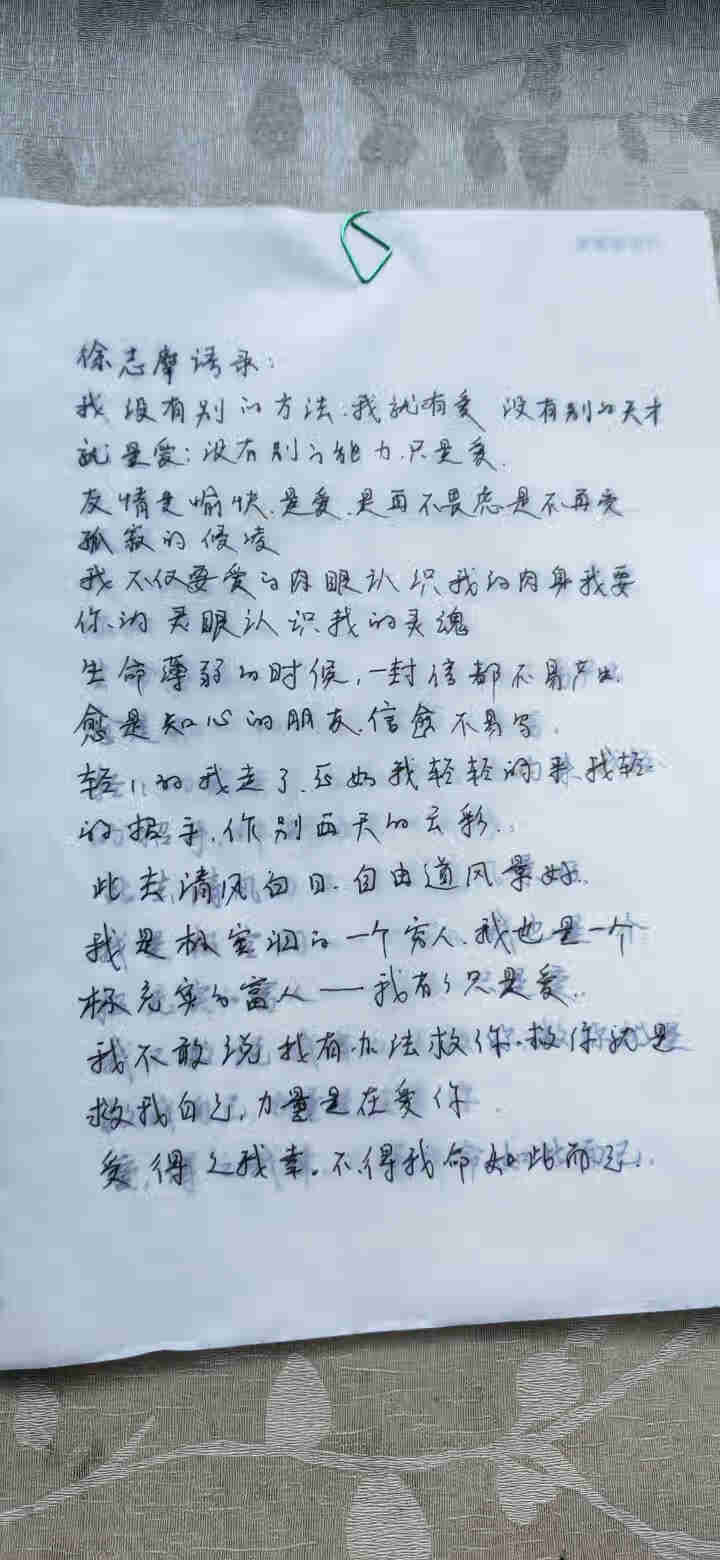 徐志摩语录：
我没有别的方法.我就有爱 没有别的天才
就是爱；没有别的能力.只是爱.
友情是愉快.是爱.是再不畏虑是不再受
孤寂的侵凌
我不仅要爱的肉眼认识我的肉身我要
你的灵眼认识我的灵魂
生命薄弱的时候,一封信都不易产出.
愈是知心的朋友.信愈不易写.
轻轻的我走了.正如我轻轻的来我轻
的招手.作别西天的云彩.
此去清风白日.自由道风景好.
我是极空洞的一个穷人.我也是一个
极充实的富人——我有的只是爱.
我不敢说我有办法救你.救你就是
救我自己,力量是在爱你.
爱得之我幸。不得我命如此而已.